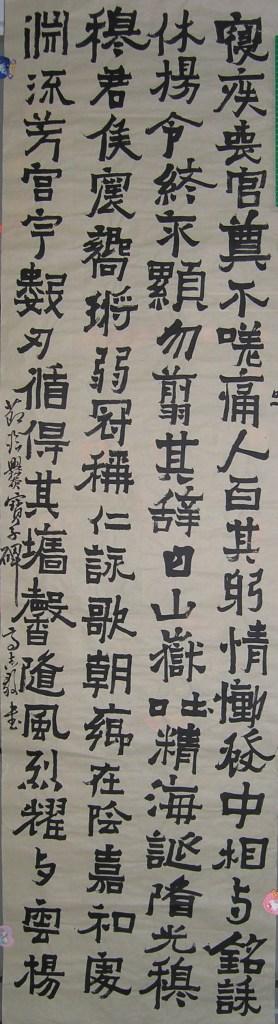 寢疾喪官莫不嗟痛人百其躬情慟發中相与銘誄
休揚令終永顯勿翦其辭曰山嶽吐精海誕陼光穆
穆君侯震響鏘弱冠稱仁詠歌朝鄉在陰嘉和處
淵流芳宮宇數刃循得其墻馨隨風烈耀与雲揚
節臨爨寶子碑 書